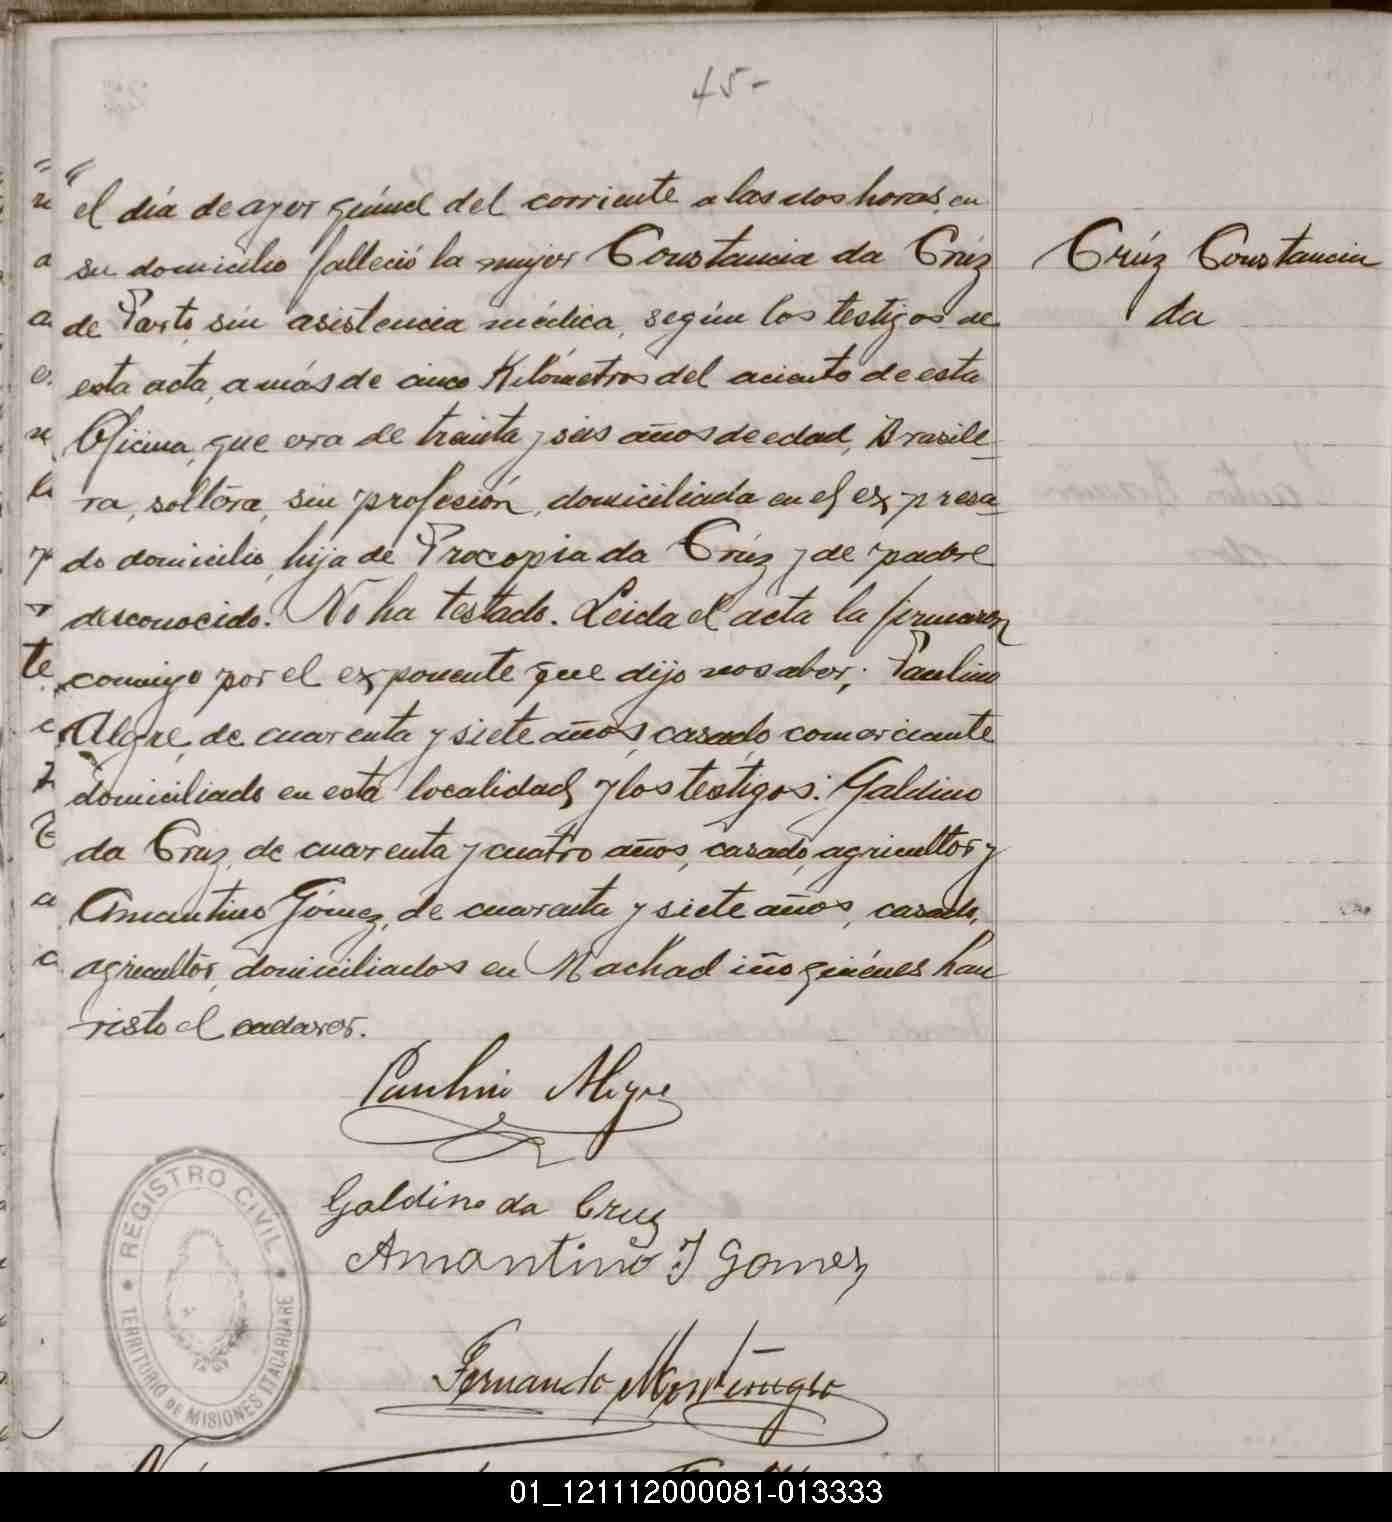 45-
el día de ayer quince del corriente a las dos horas, en
su domicilio falleció la mujer Constancia da Crúz
de Parto, sin asistencia médica, según los testigos de
esta acta, a más de cinco Kilómetros del aciento de esta
Oficina, que era de treinta y seis años de edad, Brasile-
ra, soltera, sin profesión, domiciliada en el expresa-
do domicilio, hija de Procopia da Crúz y de padre
desconocido. No ha testado. Leida el acta la firmaron
conmigo por el exponente que dijo no saber; Paulino
Alegre, de cuarenta y siete años, casado, comerciante
domiciliado en esta localidad, y los testigos: Galdino
da Cruz, de cuarenta y cuatro años, casado, agricultor y
Amantino Gómez, de cuarenta y siete años, casado,
agricultor, domiciliados en Machadiño quiénes han
visto el cadaver.
Crúz Constancia
da
Paulino Alegre
Galdino da Cruz
Amantino J Gomez
Fernando Montenegro
REGISTRO CIVIL
TERRITORIO DE MISIONES ITACARUARE
01_121112000081-013333